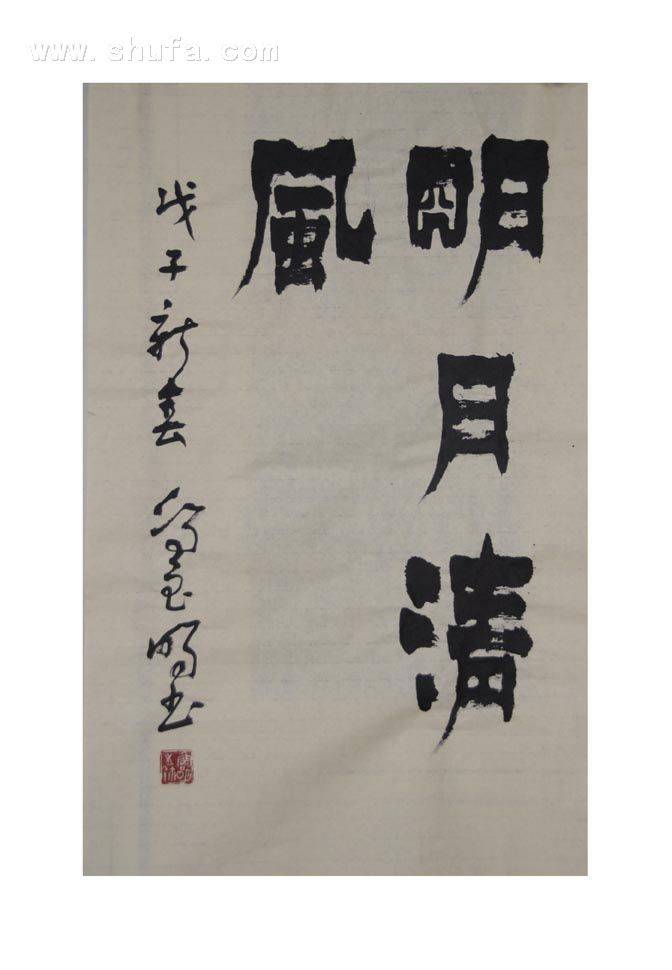 www.shufa.com
明月清
風
戊子新春
書